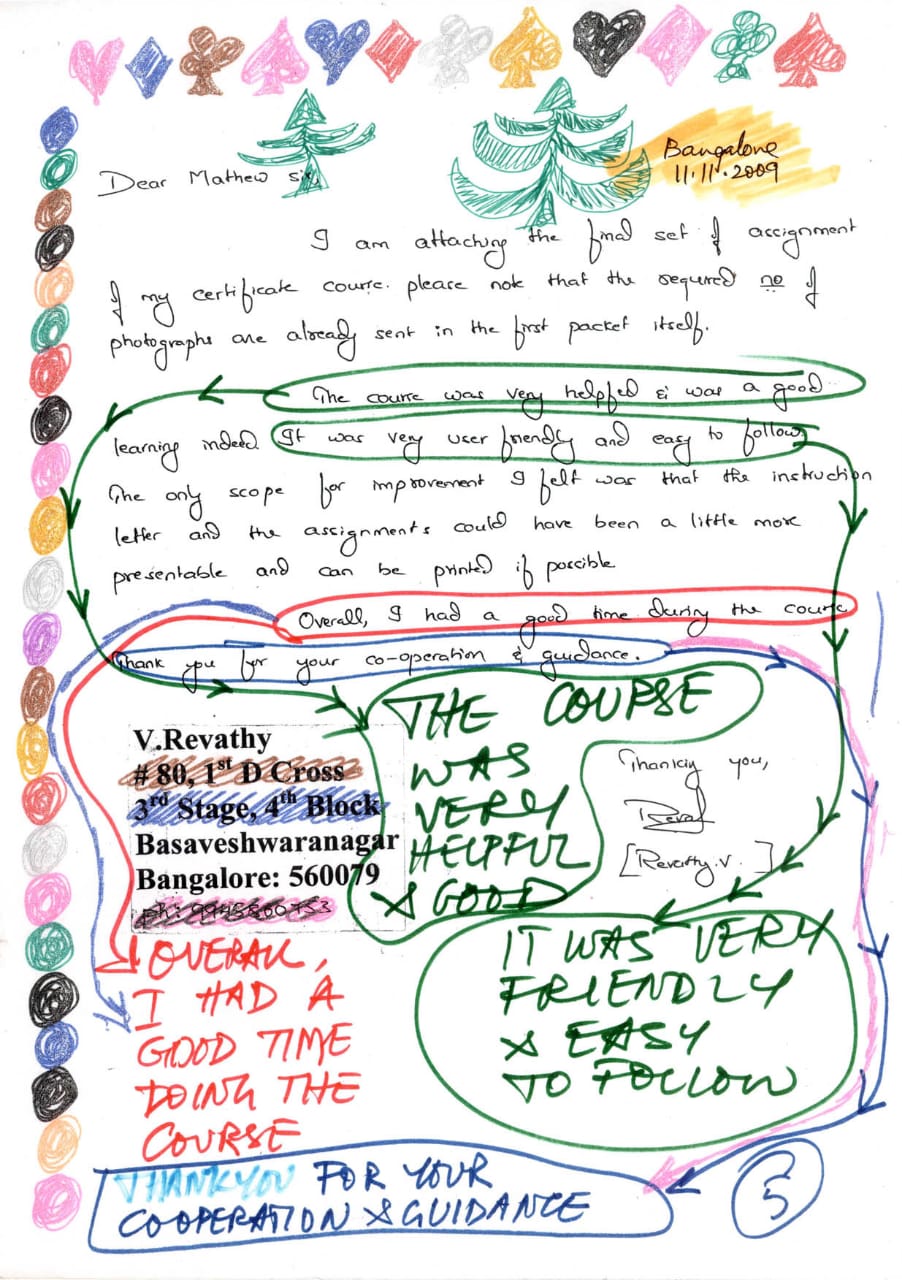 Bangalore
11.11.2009
Dear Mathew sir,
I am attaching the final set of assignment
of my certificate course. please note that the required no of
photographs are already sent in the first packet itself.
The course was very helpful & was a good
learning indeed. It was very user friendly and easy to follow.
The only scope for improvement I felt was that the instruction
letter and the assignments could have been a little more
presentable and can be printed if possible
Overall, I had a good time during the course
Thank you for your co-operation & guidance.
V.Revathy
# 80, 1st D Cross
3rd Stage, 4th Block
Basaveshwaranagar
Bangalore: 560079
ph: 9945800753
THE COURSE
WAS
VERY
HELPFUL
& GOOD
Thanking you,
[Revathy.V.]
IT WAS VERY
FRIENDLY
& EASY
TO FOLLOW
OVERALL,
I HAD A
GOOD TIME
DOING THE
COURSE
THANKYOU FOR YOUR
COOPERATION & GUIDANCE
5